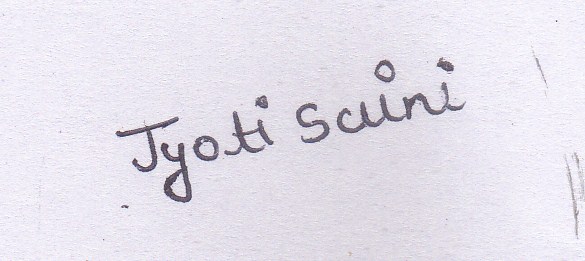 Jyoti Saini